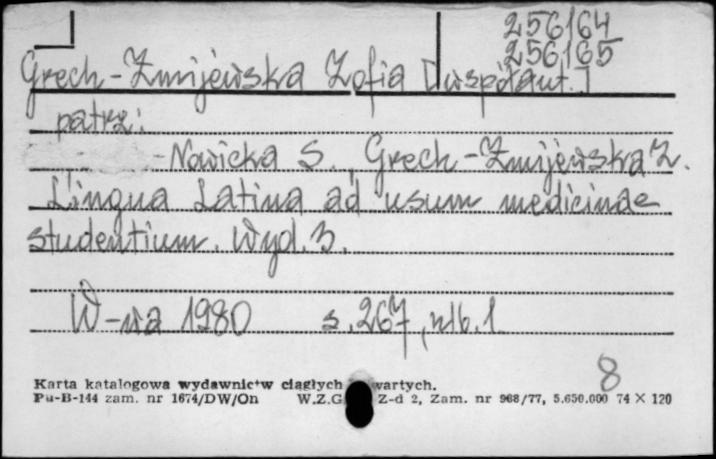 256164
256165
Grech-Żmijewska Zofia [współaut.]
patrz:
-Nowicka S., Grech-Żmijewska Z.
Lingua Latina ad usum medicinae
studentium. Wyd. 3.
W-wa 1980 s. 267, nlb. 1
8
Karta katalogowa wydawnictw ciągłych wartych.
Pu-B-144 zam. nr 1674/DW/On W.Z.G. Z-d 2, Zam. nr 968/77, 5.650.000 74 × 120